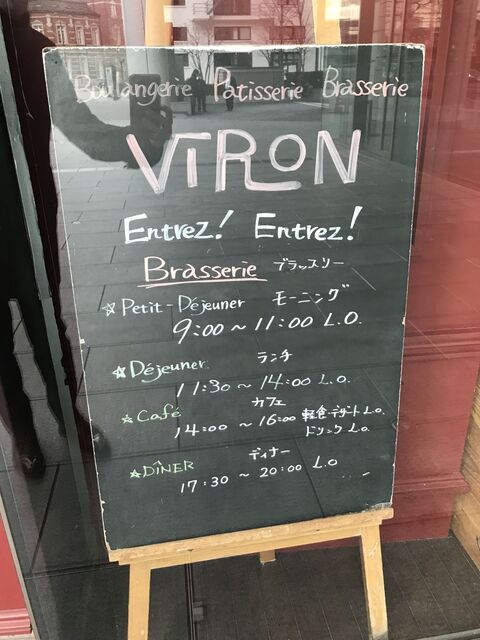 Boulangerie Patisserie Brasserie
VIRON
Entrez! Entrez!
Brasserie ブラッスリー
☆Petit-Déjeuner モーニング
9:00～11:00 L.O.
☆Déjeuner ランチ
11:30～14:00 L.O.
☆Café カフェ
14:00～16:00 軽食・デザートL.o.
ドリンク L.o.
☆DÎNER ディナー
17:30～20:00 L.O